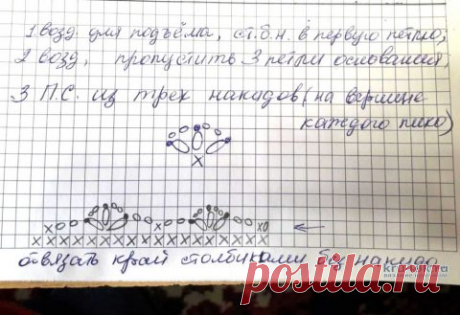 1 возд. для подъёма, ст.б.н. в первую петлю,
2 возд, пропустить 3 петли основания,
3 П.С. из трех накидов (на вершине
каждого пико)
обвязать край столбиками без накида